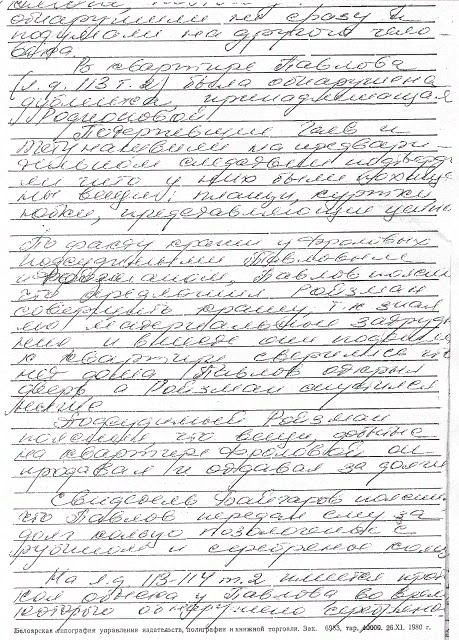 обнаружили не сразу и
подумали на другого чело
века.
В квартире Павлова
(л.д. 113 т. 2) была обнаружена
дубленка, принадлежащая
Родионовой.
Потерпевшие Гаев и
на предвари
тельном следствии подтверди
ли что у них были похище
ны вещи: плащи, куртки,
юбки, представляющие ценно
По факту кражи у Фроловых
подсудимыми Павловым
и Ройзманом, Павлов пояснил
что предложил Ройзман
совершить кражу, т.к знал
его материальные затруд
нения и вместе они
к квартире сверились что
нет дома Павлов открыл
дверь а Ройзман спустился
ниже
Подсудимый Ройзман
пояснил, что вещи, взятые
на квартире Фроловой он
продавал и отдавал за долги
Свидетель пояснил
что Павлов передал ему за
долг кольцо позолоченное с
рубином и серебреное коль
На л.д. 113-114 т. 2 имеется прото
кол обыска у Павлова во время
которого обнаружено серебреное
Белоярская типография управления издательств, полиграфии и книжной торговли. Зак. 6983, тир. 40000. 26.XI. 1980 г.